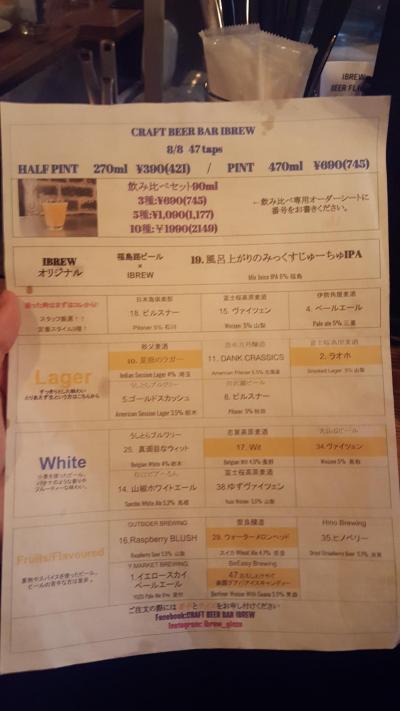 IBREW
CRAFT BEER BAR IBREW
8/8 47 taps
HALF PINT 270ml ¥390(421) / PINT 470ml ¥690(745)
飲み比べセット90ml
3種:¥690(745)
5種:¥1,090(1,177)
10種:¥1990(2149)
←飲み比べ専用オーダーシートに
番号をお書きください。
IBREW
オリジナル
福島路ビール
×
IBREW
19.風呂上がりのみっくすじゅーちゅIPA
Mix Juice IPA 5% 福島
迷った時はまずはコレから!
スタッフ厳選!!
定番スタイル3種!
日本海倶楽部
18.ピルスナー
Pilsner 5% 石川
富士桜高原麦酒
15.ヴァイツェン
Weizen 5% 山梨
伊勢角屋麦酒
4.ペールエール
Pale ale 5% 三重
Lager
すっきりとした味わい
とりあえず生という方はこちらから
秩父麦酒
10.夏樹のラガー
Indian Session Lager 4% 埼玉
11.DANK CRASSICS
American Pilsner 5.5% 北海道
富士桜高原麦酒
2.ラオホ
Smoked Lager 5% 山梨
うしとらブルワリー
5.ゴールドスカッシュ
American Session Lager 3.5% 栃木
8.ピルスナー
Pilsner 5% 秋田
White
小麦を使ったビール。
うしとらブルワリー
25.真面目なウィット
Belgian White 4% 栃木
志賀高原麦酒
17.Wit
Belgian Wit 4.5% 長野
34.ヴァイツェン
Weizen 5% 鳥取
14.山椒ホワイトエール
Sansho White Ale 5.2%
富士桜高原麦酒
38.ゆずヴァイツェン
Yuzu Weizen 5.5% 山梨
Fruits/Flavoured
果物やスパイスを使ったビール。
ビールの苦手な方は是非。
OUTSIDER BREWING
16.Raspberry BLUSH
Raspberry Beer 5.5% 山梨
奈良醸造
29.ウォーターメロンヘッド
スイカ Wheat Ale 4.7% 奈良
Hino Brewing
35.ヒノベリー
Dried Strawberry Beer 5.5% 滋賀
Y.MARKET BREWING
1.イエロースカイ
ペールエール
YUZU Pale Ale 5% 愛知
BinEasy Brewing
Berliner Weisse With Guava 3.5%
ご注文の際には番号とサイズをお申し付けください
Facebook:CRAFT BEER BAR IBREW
Instagram: ibrew_ginza